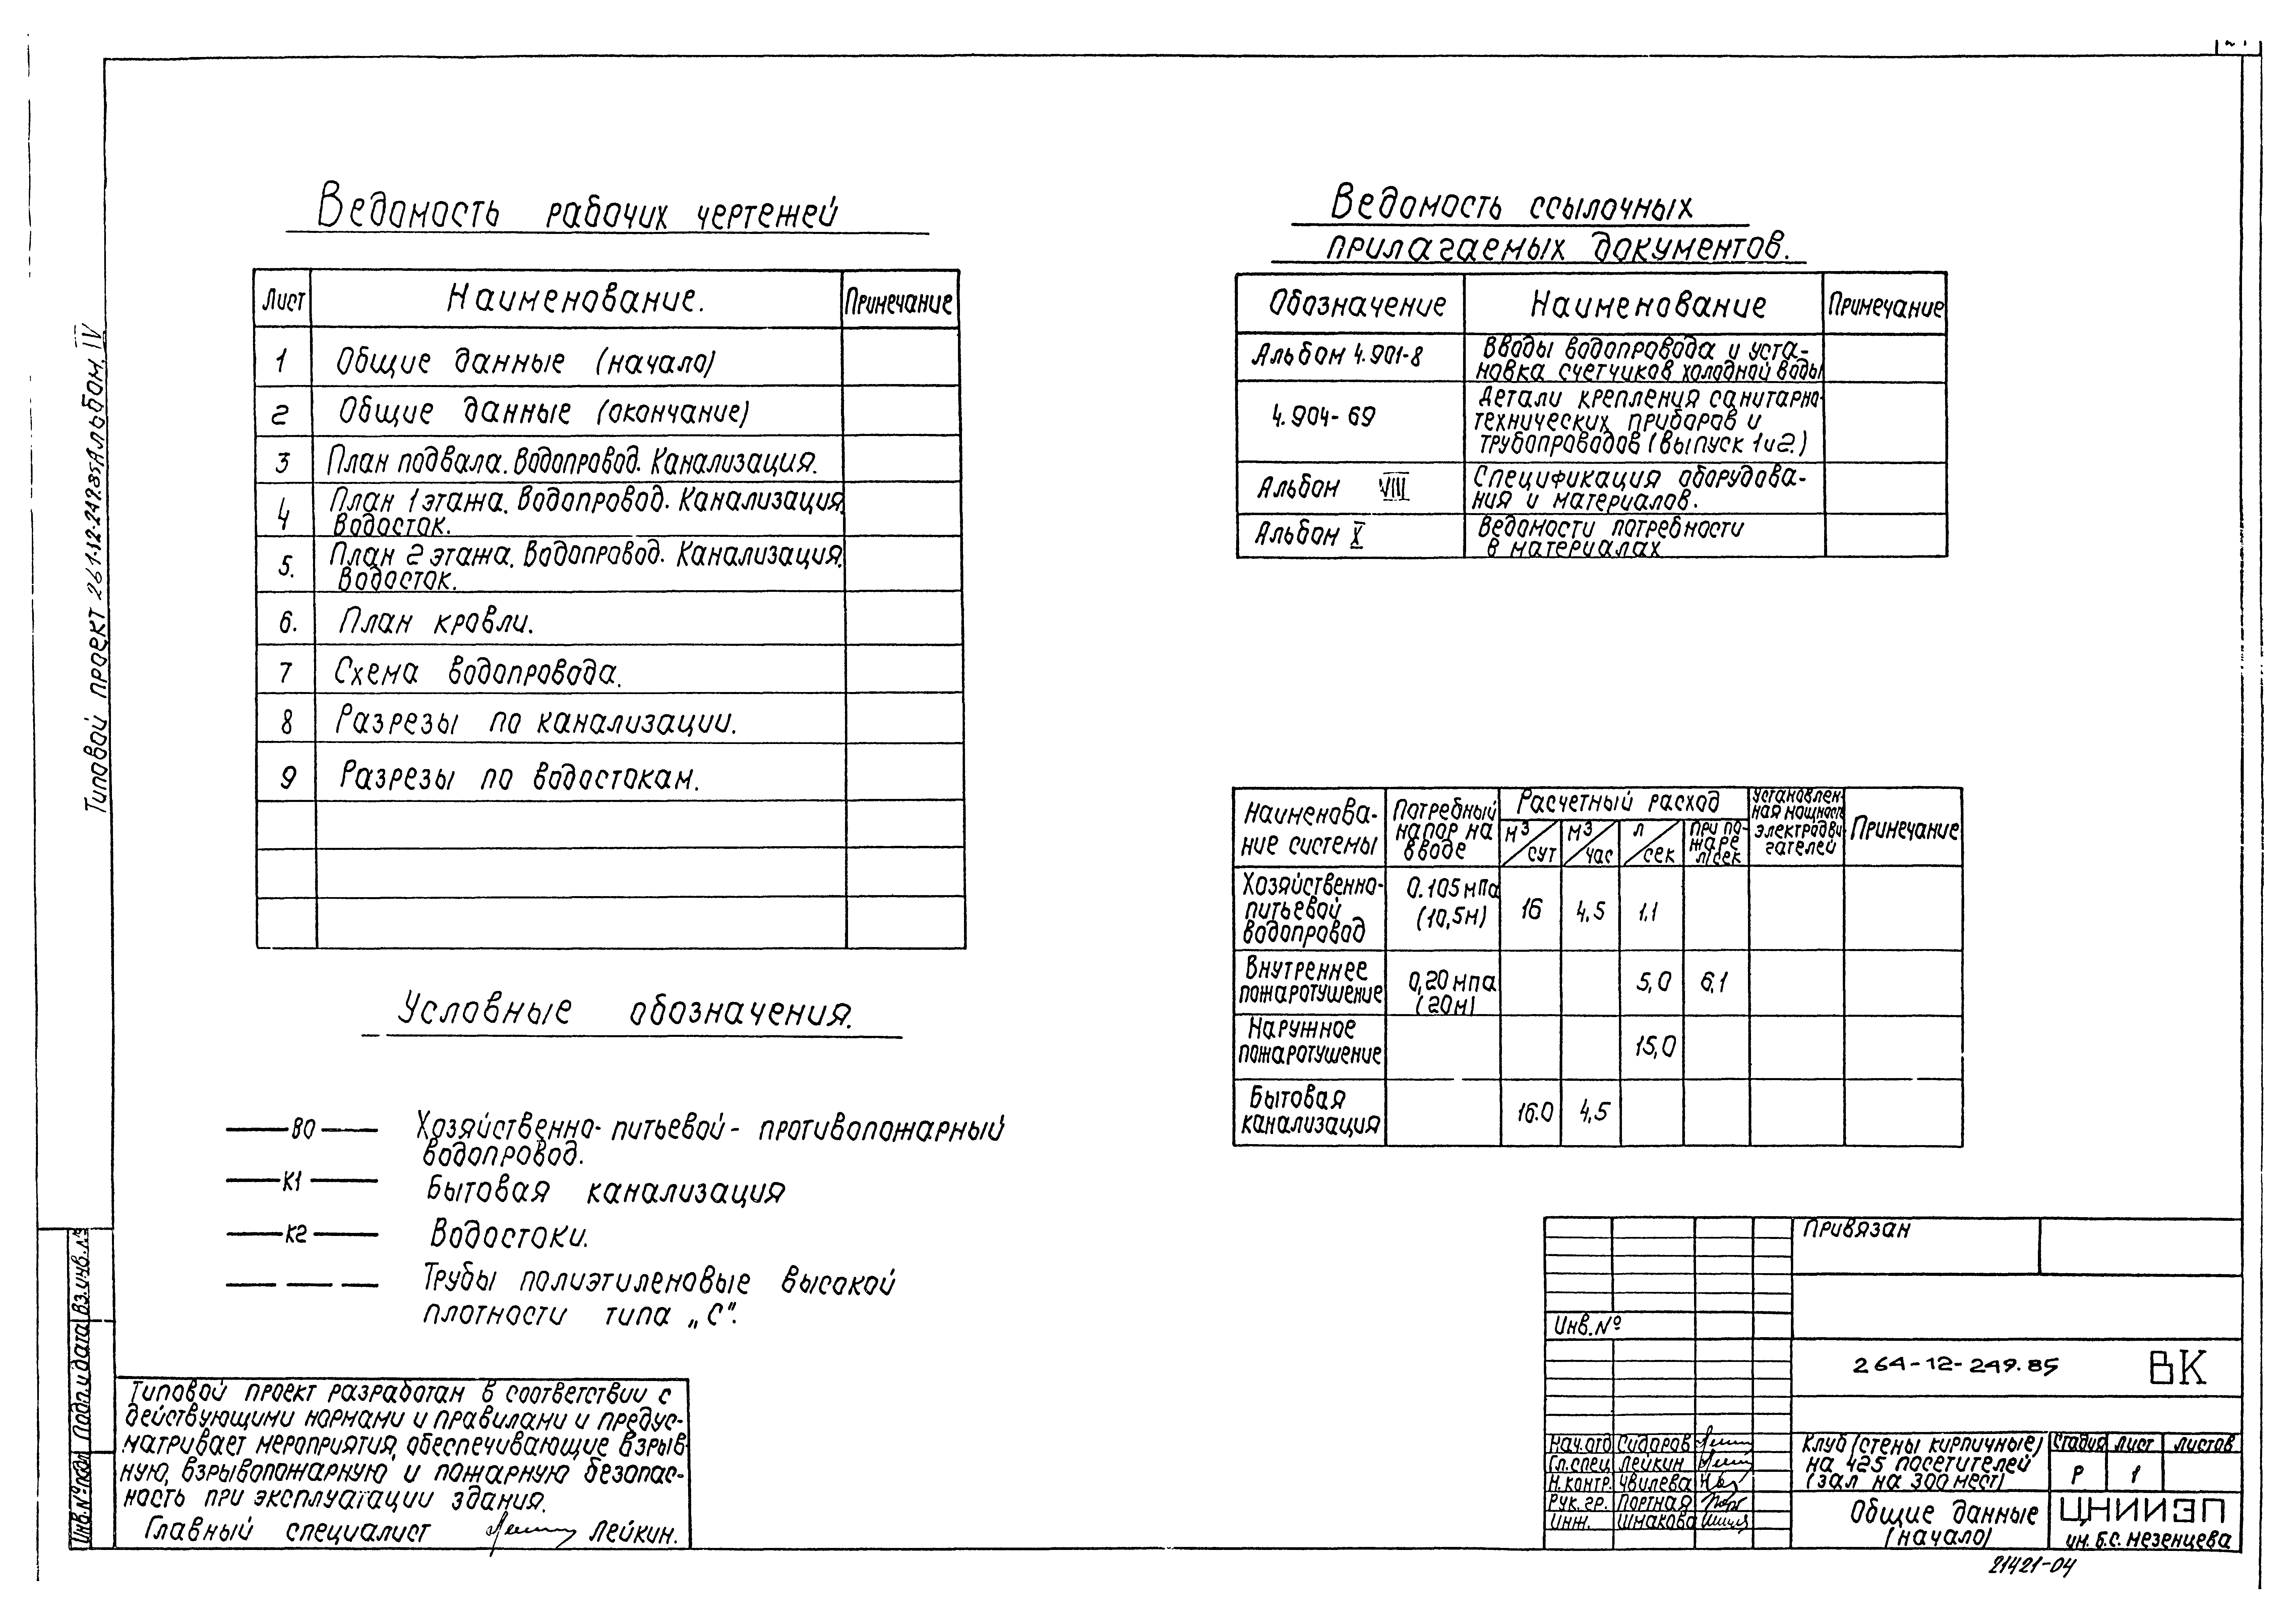 Типовой проект 261-12-249.85 Альбом IV
Ведомость рабочих чертежей
Лист Наименование. Примечание
1 Общие данные (начало)
2 Общие данные (окончание)
3 План подвала. Водопровод. Канализация.
4 План 1 этажа. Водопровод. Канализация.
Водосток.
5. План 2 этажа. Водопровод. Канализация.
Водосток.
6. План кровли.
7 Схема водопровода.
8 Разрезы по канализации.
9 Разрезы по водостокам.
Условные обозначения.
В0 Хозяйственно-питьевой-противопожарный
водопровод.
К1 Бытовая канализация
К2 Водостоки.
Трубы полиэтиленовые высокой
плотности типа „С".
Типовой проект разработан в соответствии с
действующими нормами и правилами и предус-
матривает мероприятия, обеспечивающие взрыв-
ную, взрывопожарную и пожарную безопас-
ность при эксплуатации здания.
Главный специалист Лейкин.
Инв. № подл Подп. и дата Вз. инв. №
Ведомость ссылочных
прилагаемых документов.
Обозначение Наименование Примечание
Альбом 4.901-8 Вводы водопровода и уста-
новка счетчиков холодной воды
4.904-69 Детали крепления санитарно-
технических приборов и
трубопроводов (выпуск 1 и 2.)
Альбом VIII Спецификация оборудова-
ния и материалов.
Альбом X Ведомости потребности
в материалах
Наименова-
ние системы
Потребный
напор на
вводе
Расчетный расход
м3/сут м3/час л/сек При по-
жаре
л/сек
Установлен-
ная мощность
электродви-
гателей
Примечание
Хозяйственно-
питьевой
водопровод
0.105 мпа
(10,5м)
16 4,5 1.1
Внутреннее
пожаротушение
0,20 мпа
(20м)
5,0 6,1
Наружное
пожаротушение
15,0
Бытовая
канализация
16.0 4,5
Привязан
Инв. №
264-12-249.85 ВК
Нач. отд Сидоров
Гл. спец. Лейкин
Н. контр. Чвилева
Рук. гр. Портная
Инж. Шмакова
Клуб (стены кирпичные)
на 425 посетителей
(зал на 300 мест)
Стадия Лист Листов
Р 1
Общие данные
(начало)
ЦНИИЭП
им. Б.С. Мезенцева
21421-04